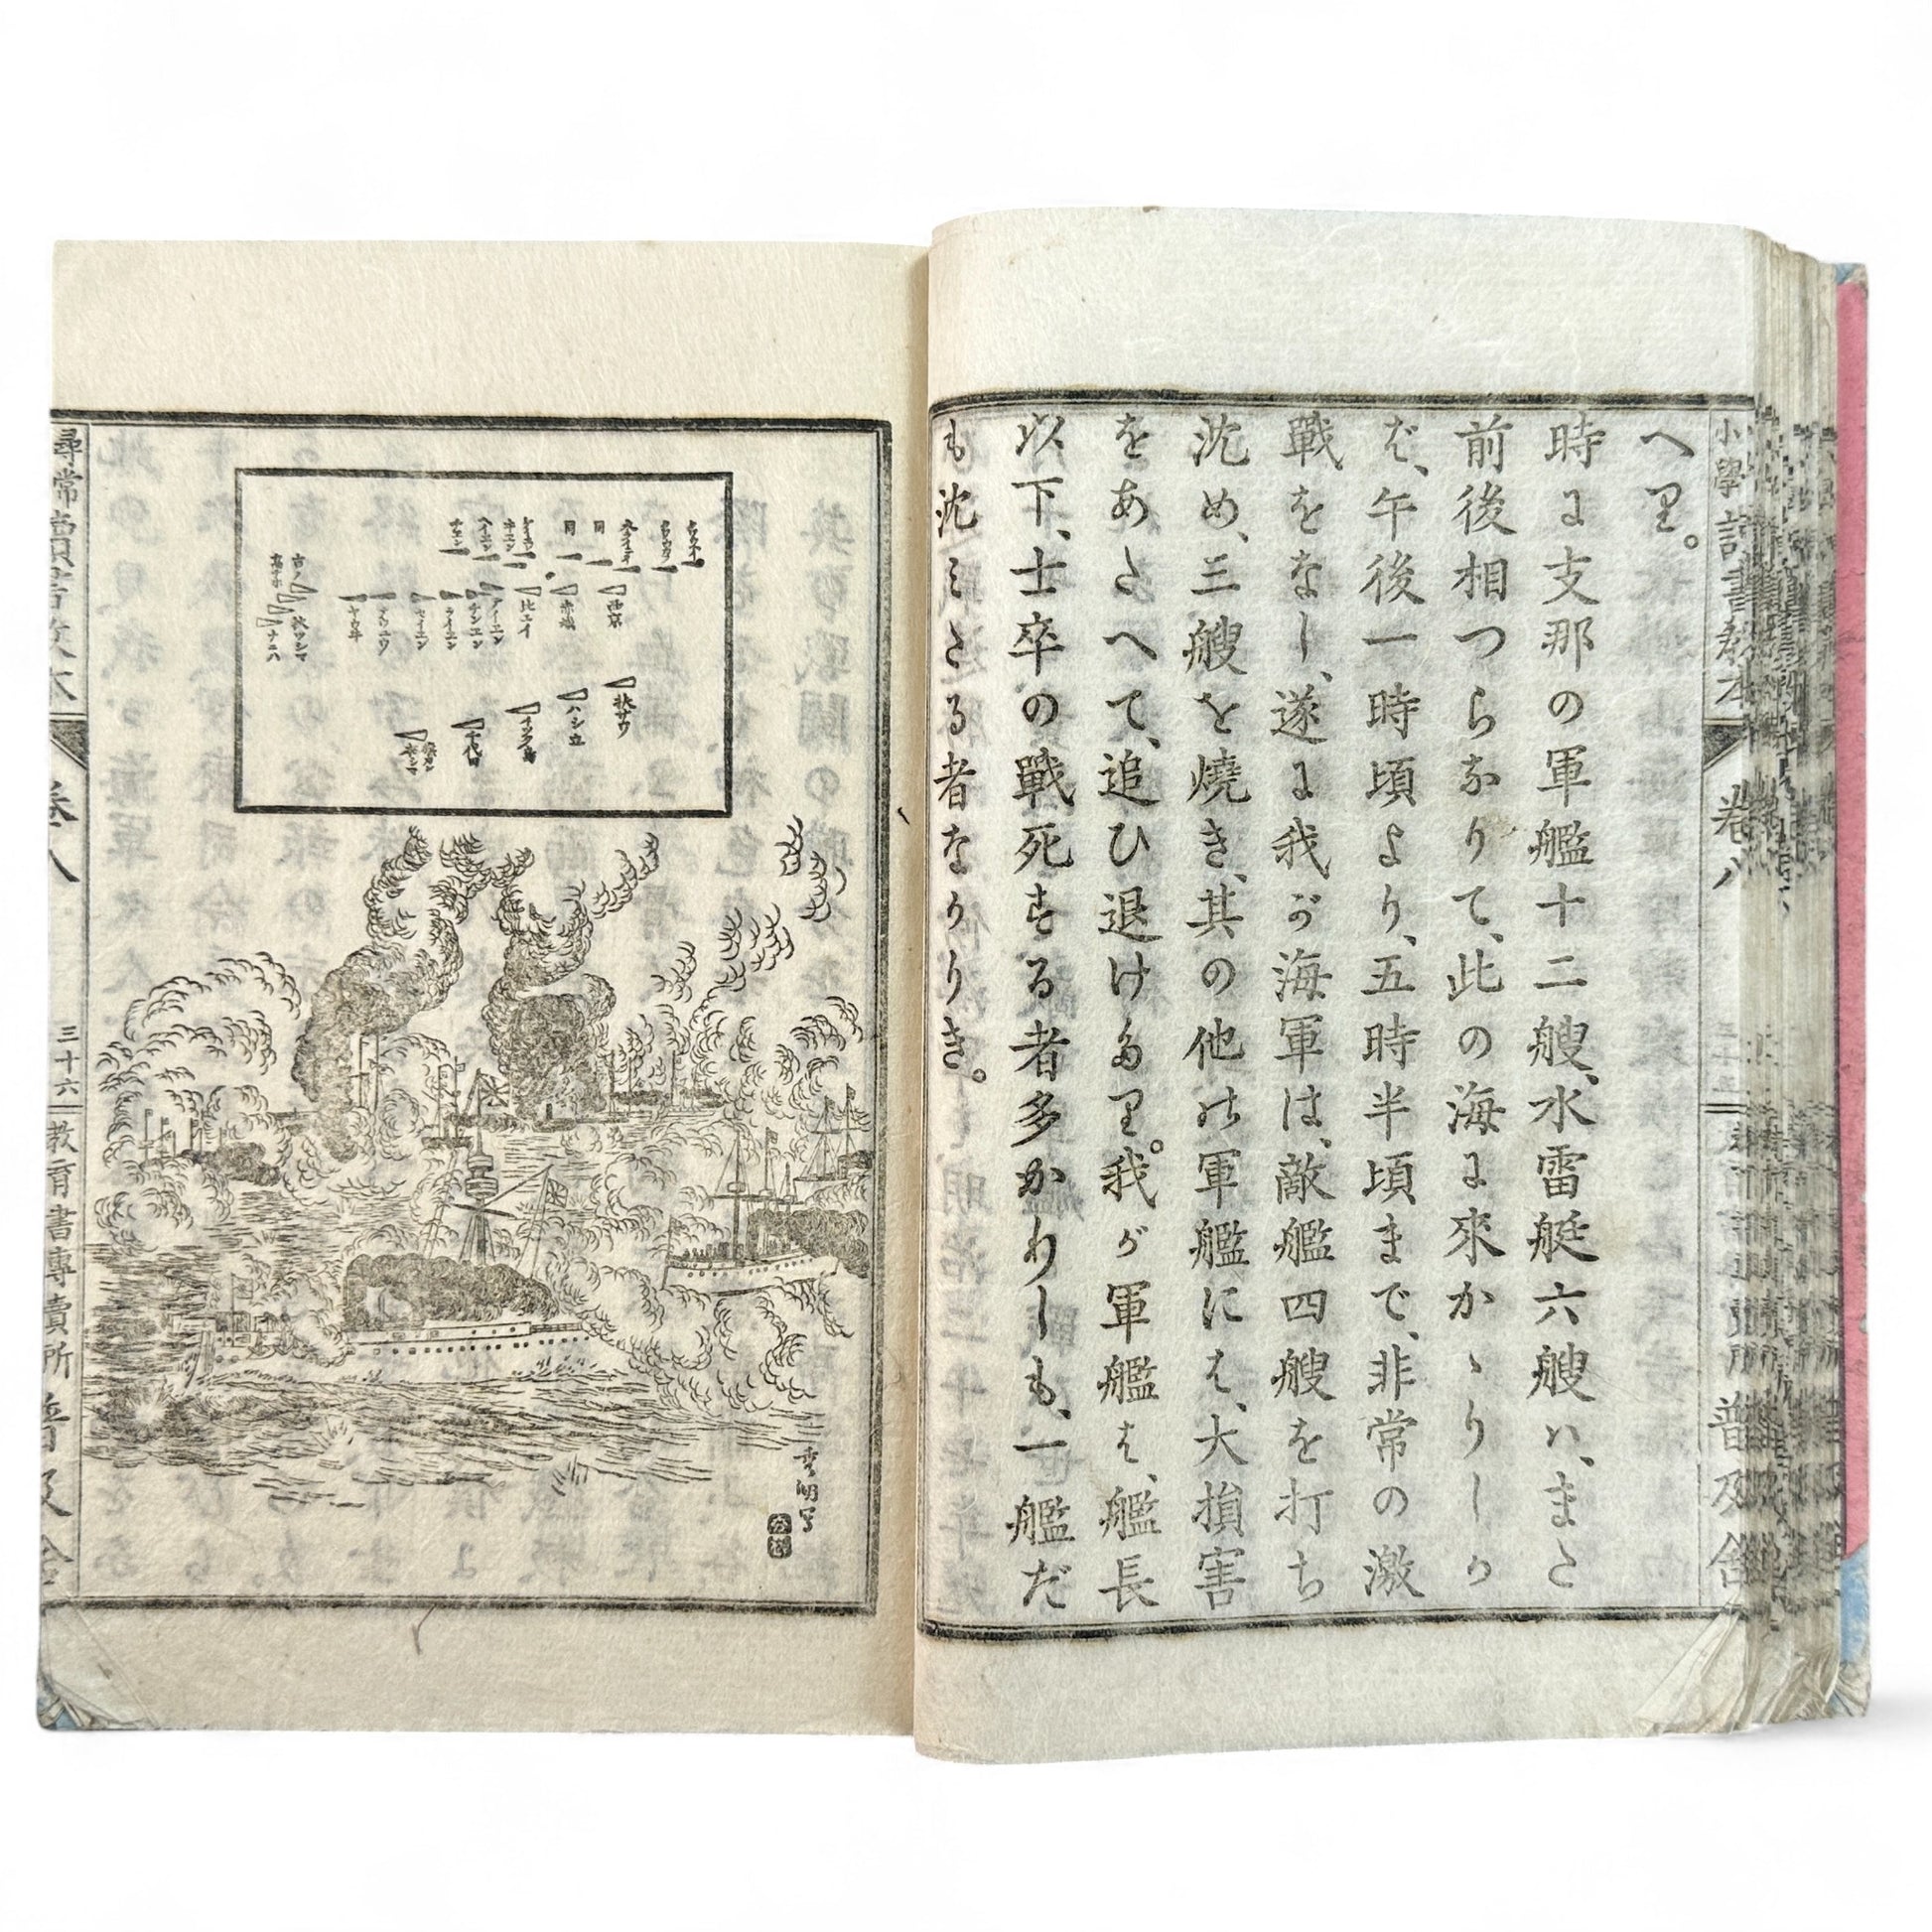 へり。
時に支那の軍艦十二艘、水雷艇六艘ハ、また
前後相つらなりて、此の海に來かゝりしか
ば、午後一時頃より、五時半頃まで、非常の激
戰をなし、遂に我が海軍は、敵艦四艘を打ち
沈め、三艘を燒き、其の他の軍艦にも、大損害
をあたへて、追ひ退けたり。我が軍艦も、艦長
以下、士卒の戰死せる者多かりしも、一艦だ
も沈みたる者なかりき。
小學讀書教本
卷八
三十五
普及舍
同
同
西京
赤城
比エイ
吉ノ
高チホ
秋ツシマ
ナニハ
扶サウ
ハシ立
千代田
尋常讀書教本
卷八
三十六
教育書專賣所
普及舍